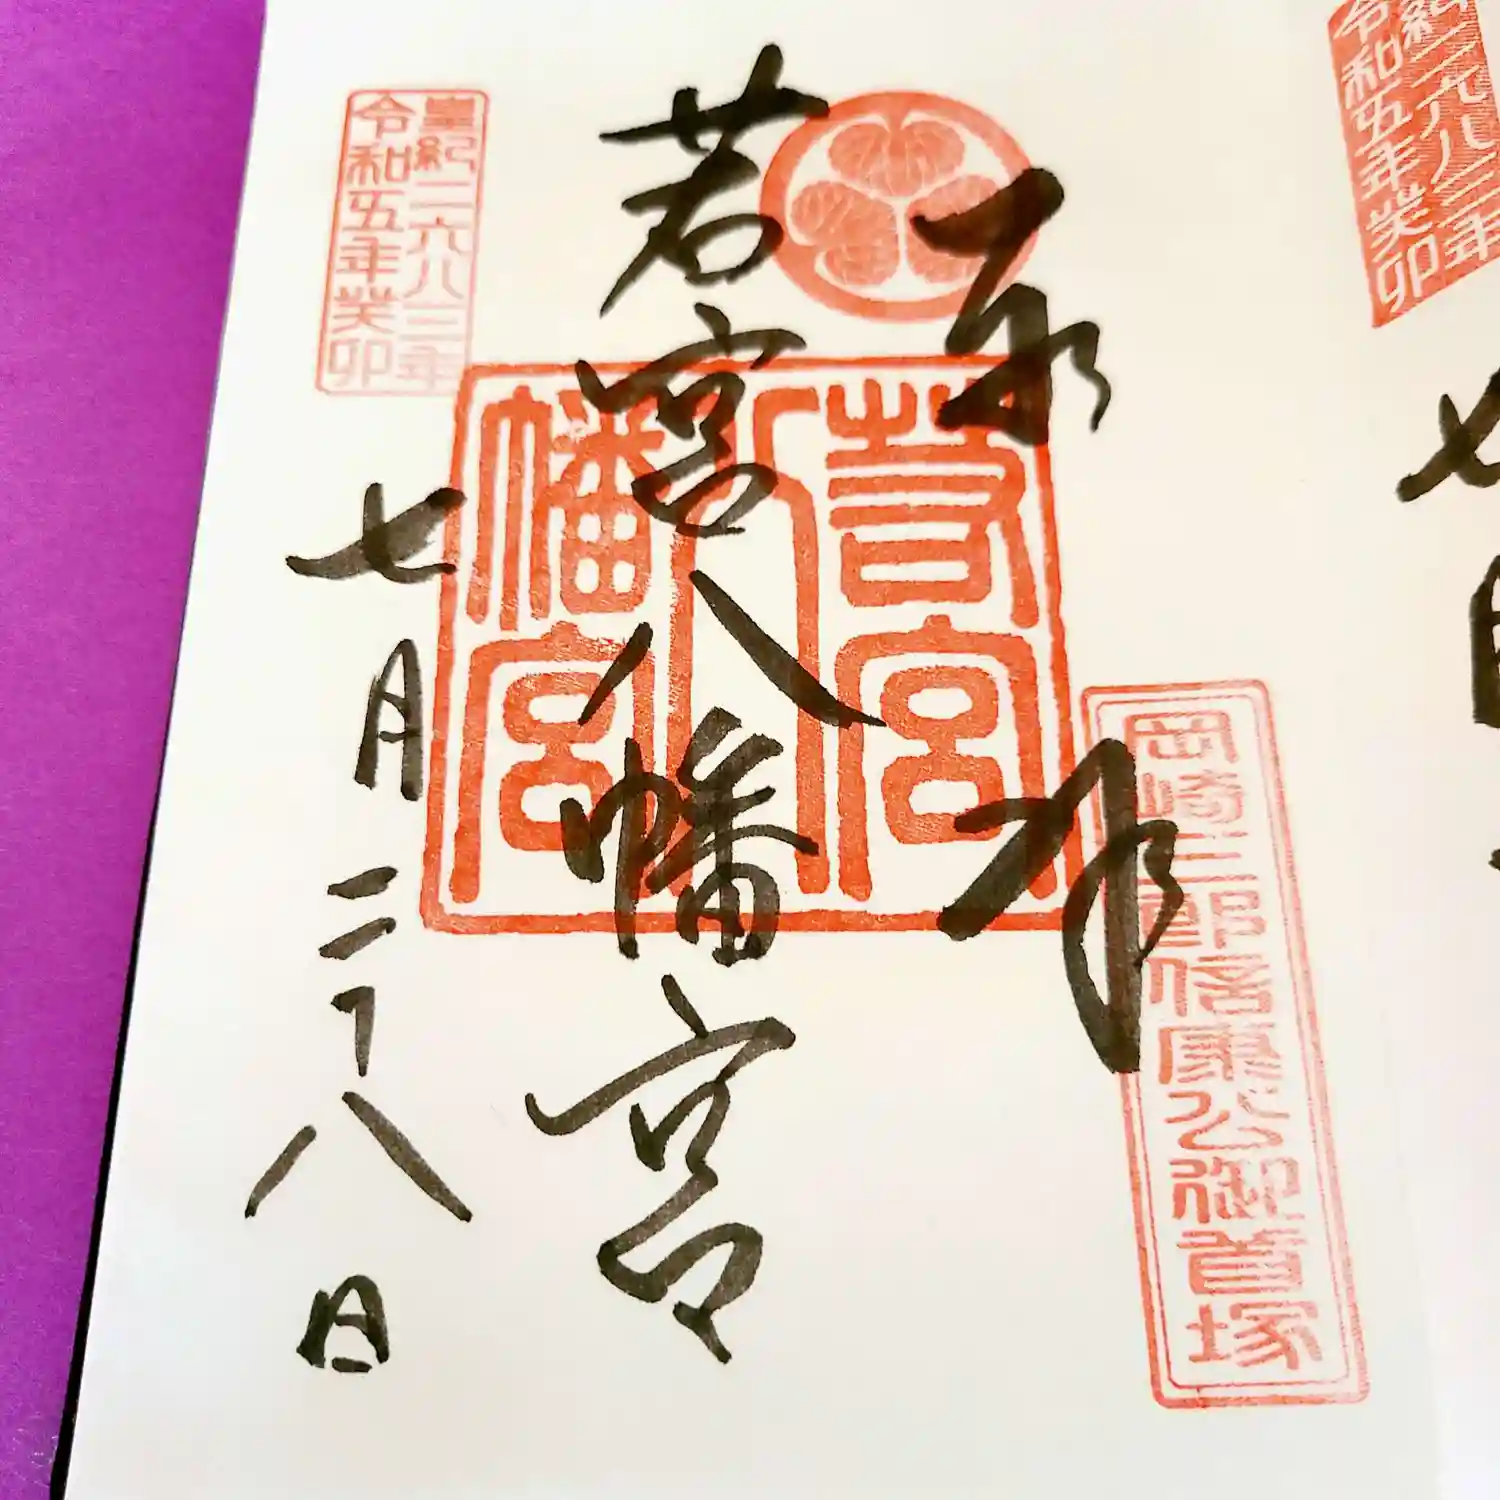 奉拝
岡崎三郎信康公御首塚
若宮八幡宮
若宮八幡宮
七月二十八日
皇紀二六八三年
令和五年癸卯
紀二六八三年
令和五年癸卯